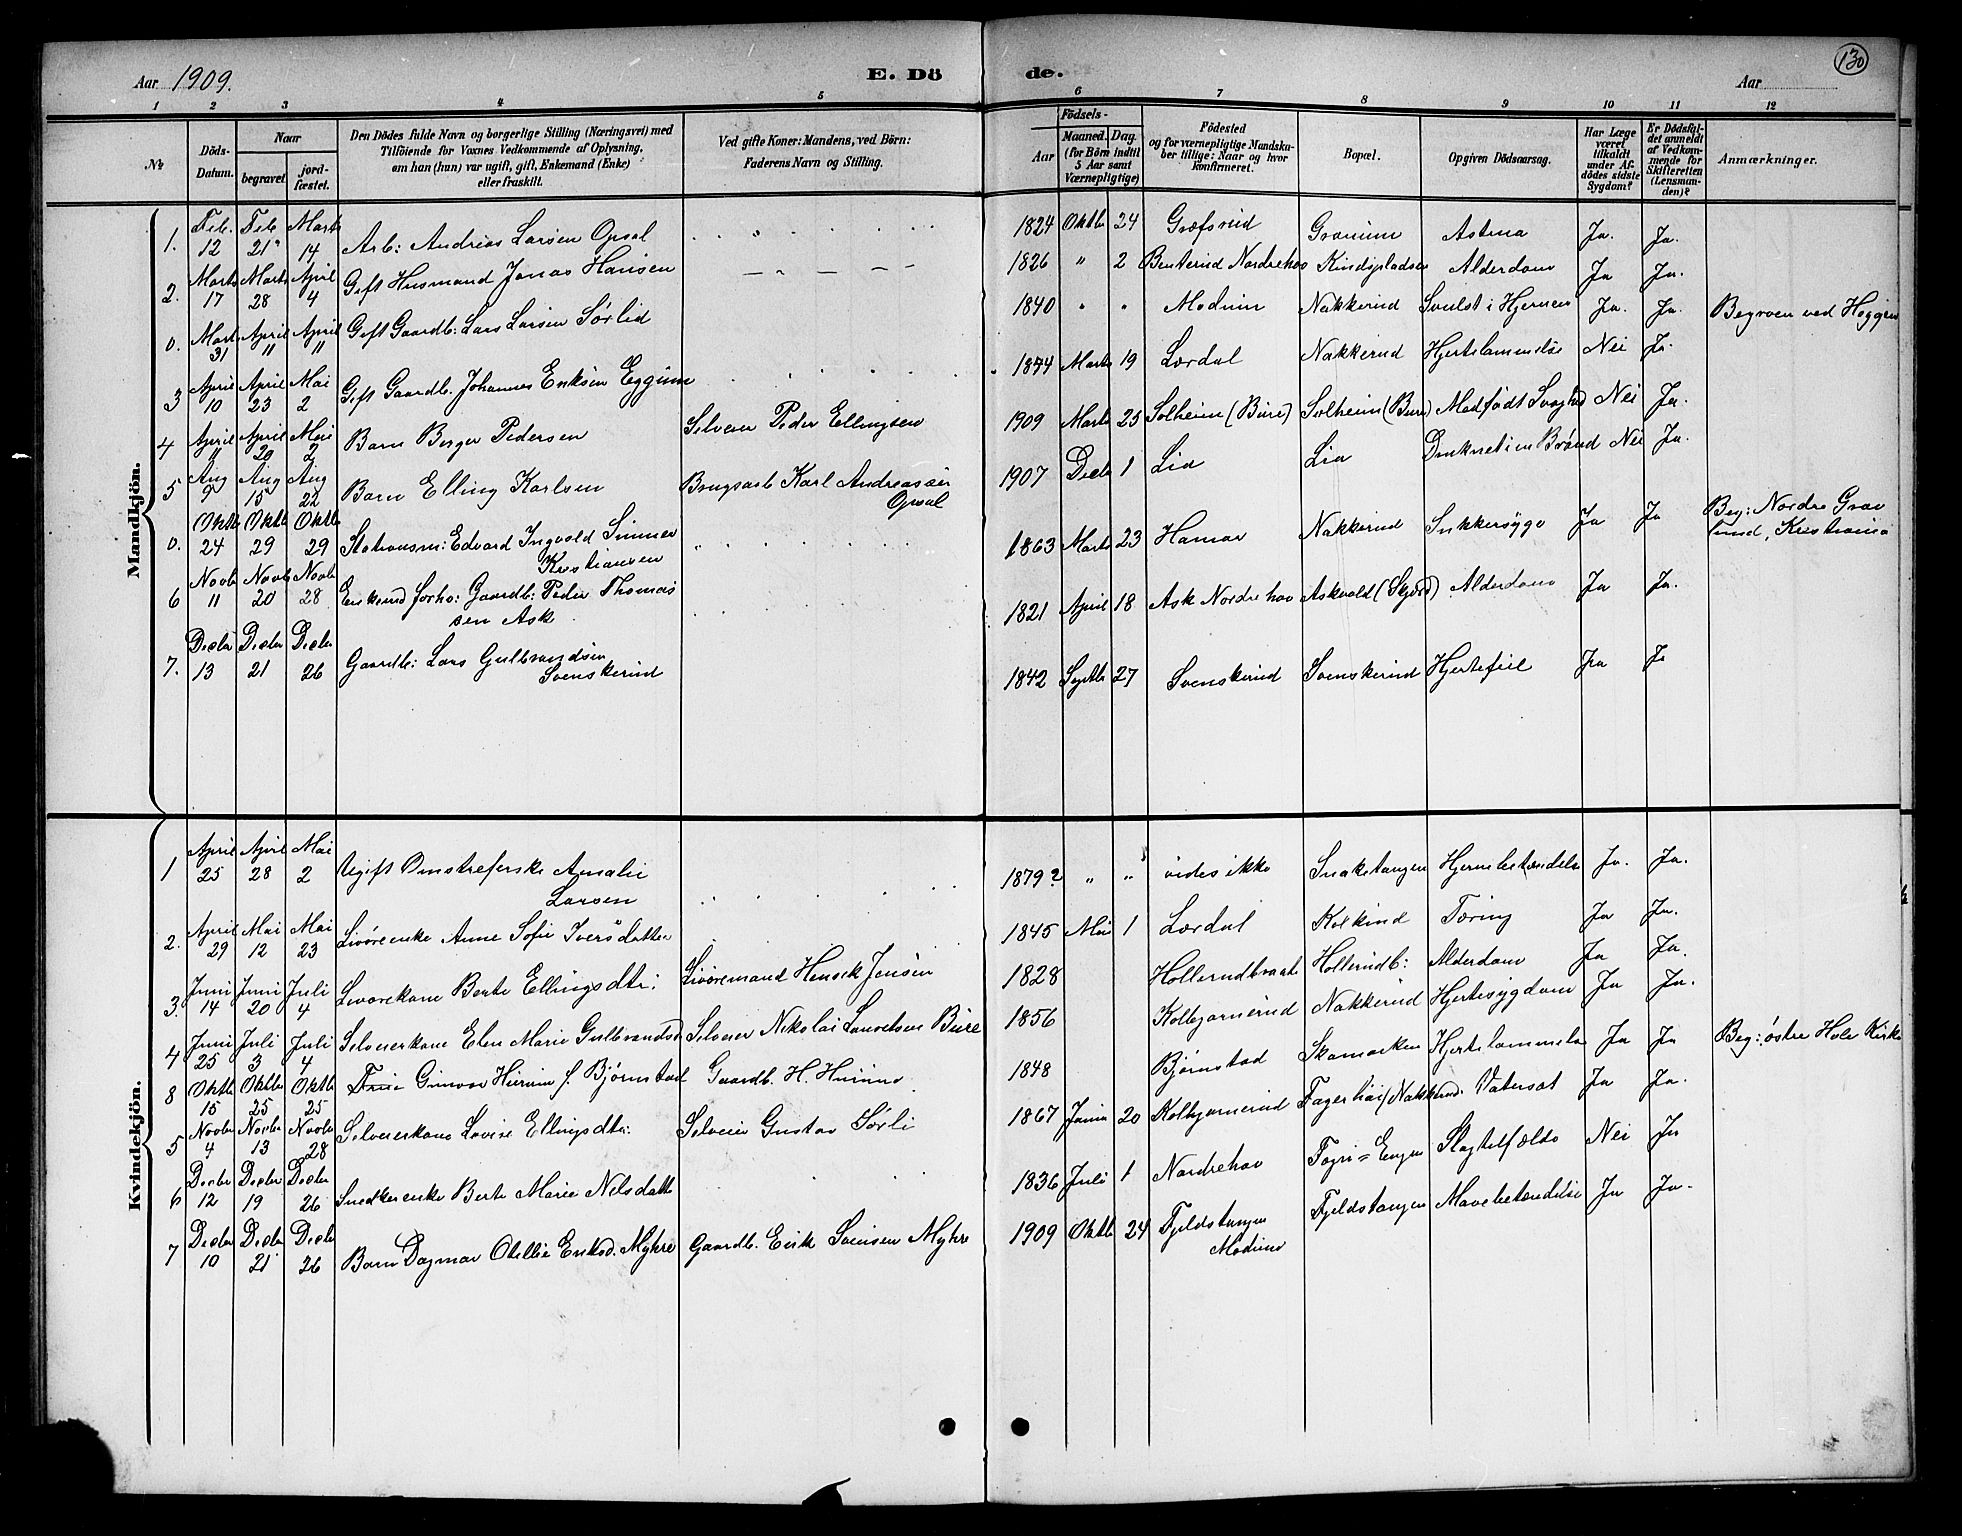 Aar 1909.
E. Dö de.
Aar
130
1 2 3 4 5 6 7 8 9 10 11 12
№
Döds-Datum.
Naar
begravet
jord-fæstet.
Den Dödes fulde Navn og borgerlige Stilling (Næringsvei) med
Tilföiende for Voxnes Vedkommende af Oplysning,
om han (hun) var ugift, gift, Enkemand (Enke)
eller fraskilt.
Ved gifte Koner: Mandens, ved Börn:
Faderens Navn og Stilling.
Födsels-
Aar
Maaned. Dag.
(for Börn indtil
5 Aar samt
Værnepligtige)
Födested
og for værnepligtige Mandska-
ber tillige: Naar og hvor
konfirmeret.
Bopæl.
Opgiven Dödsaarsag.
Har Læge
været
tilkaldt
under Af-
dödes sidste
Sygdom?
Er Dödsfal-
det anmeldt
af Vedkom-
mende for
Skifteretten
(Lensman-
den)?
Anmærkninger.
Mandkjön.
1. Feb. 12 Feb 21 Marts 14 Arb: Andreas Larsen Opsal 1824 Oktb 24 Græfsrud Granum Astma Ja. Ja.
2. Marts 17 Marts 28 April 4 Gift Husmand Jonas Hansen 1826 " 2 Benterud Nordrehov Kindspladsen Alderdom Ja Ja.
0. Mart 31 April 11 April 11 Gift Gaardb: Lars Larsen Sørlid 1840 " " Modum Nakkerud Svulst i Hjernen Ja. Ja. Begraven ved Heggen
3 April 10 April 23 Mai 2 Gift Gaardb. Johannes Eriksen Eggum Marts 19 Lærdal Nakkerud Hjertelammelse Nei Ja.
4 April 11 April 20 Mai 2 Barn Birger Pedersen Selveier Peder Ellingsen 1909 Marts 25 Solheim (Bure) Solheim (Bure) Medfødt Svaghed Nei Ja.
5 Aug 9 Aug 15 Aug 22 Barn Elling Karlsen Brugsarb Karl Andreassen
Opsal 1907 Decbr 1 Lia Lia Druknet i en Brønd Nei Ja.
0. Oktb 24 Oktb 29 Oktb 29 Stationsm: Edvard Ingvald Simmer
Kristiansen 1863 Marts 23 Hamar Nakkerud Sukkersyge Ja Ja Beg: Nordre Grav
lund, Kristiania
6 Novb 11 Novb 20 Novb 28 Enkemd forhv: Gaardb: Peder Thomas
sen Ask 1821 April 18 Ask Nordrehov Askvold (Skjørd) Alderdom Ja Ja.
7. Decbr 13 Decbr 21 Decbr 26 Gaardb: Lars Gulbrandsen
Svenskerud 1842 Septb 27 Svenskerud Svenskerud Hjertefeil Ja Ja
Kvindekjön.
1 April 25 April 28 Mai 2 Ugift Omstreiferske Amalie
Larsen 1879? " " vides ikke Snaketangen Hjernebetændelse Ja. Ja.
2. April 29 Mai 12 Mai 23 Livøreenke Anne Sofie Iversdatter 1845 Mai 1 Lærdal Tæring Ja Ja.
3. Juni 14 Juni 20 Juli 4 Livørekone Berte Ellingsdtr: Livøremand Henrik Jensen 1828 Hollerudbraaten Hollerudb: Alderdom Ja Ja.
4 Juni 25 Juli 3 Juli 4 Selveierkone Elen Marie Gulbrandsd Selveier Nikolai Lauritsen Bure 1856 Kolbjørnerud Nakkerud Hjertesygdom Ja Ja.
8 Oktb 15 Oktb 25 Oktb 25 Fru Gunvor Hurum f. Bjørnstad Gaardb. H. Hurum 1848 Bjørnstad Skamarken Hjertelammelse Ja Ja Beg: østre Hole Kirke
5 Novbr 4 Novbr 13 Novbr 28 Selveierkone Lovise Ellingsdtr: Selveier Gustav Sørli 1867 Juni 20 Kolbjørnerud Fagerhøi (Nakkerud. Vatersot Ja Ja.
6 Decbr 12 Decbr 19 Decbr 26 Snedkerenke Berte Marie Nilsdatter 1836 Juli 1 Nordrehov Fagri=Engen Slagtilfælde Nei Ja
7 Decbr 10 Decbr 21 Decbr 26 Barn Dagmar Otellie Eriksd. Myhre Gaardb. Erik Svensen Myhre 1909 Oktb 24 Fjeldstangen
Modum Fjeldstangen Mavebetændelse Ja Ja.